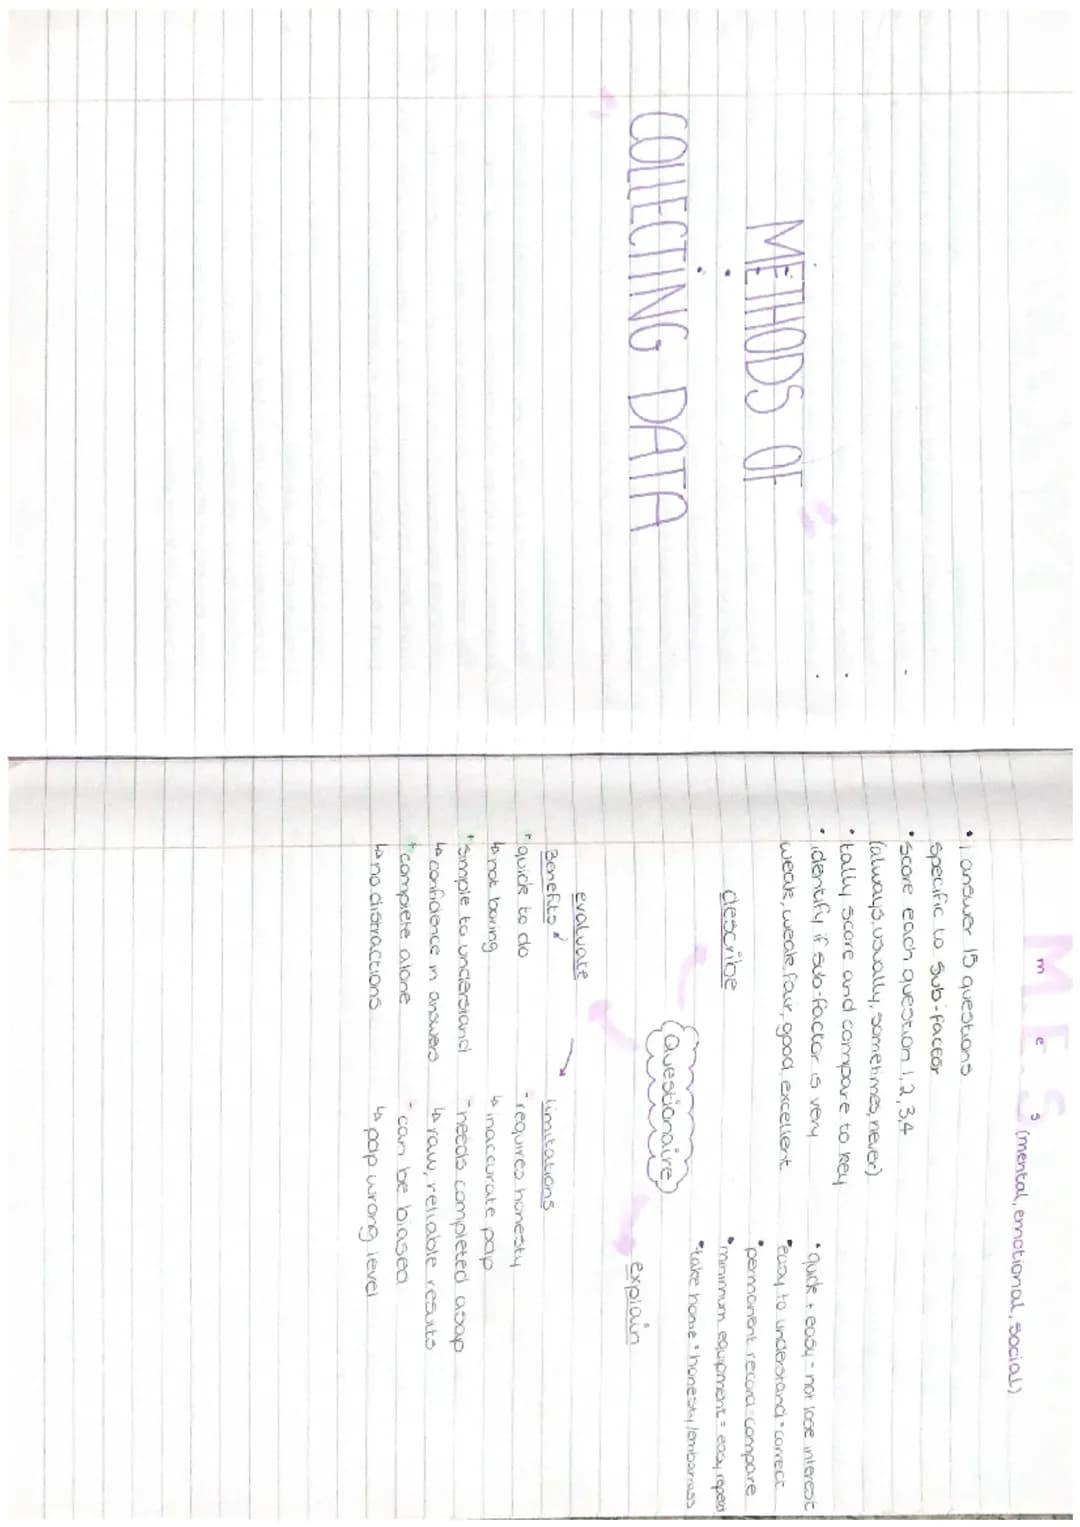 METHODS OF
COLLECTING DATA
M E S
m e s (mental, emotional, social)
• I answer 15 questions
specific to sub-factor
• score each question 1,2,3,4
(always, usually, sometimes, never)
• tally score and compare to key
• identify if sub-factor is very
weak, weak, fair, good, excellent
describe
Questionaire
• quick + easy = not lose interest
• easy to understand = correct
• permanent record = compare
• minimum equipment = easy repeat
• take home = honesty/embarrass
explain
evaluate
Benefits
+ quick to do
↳ not boring
+ simple to understand
↳ confidence in answers
+ complete alone
↳ no distractions
limitations
- requires honesty
↳ inaccurate pdp
- needs completed asap
↳ raw, reliable results
- can be biased
↳ pdp wrong level